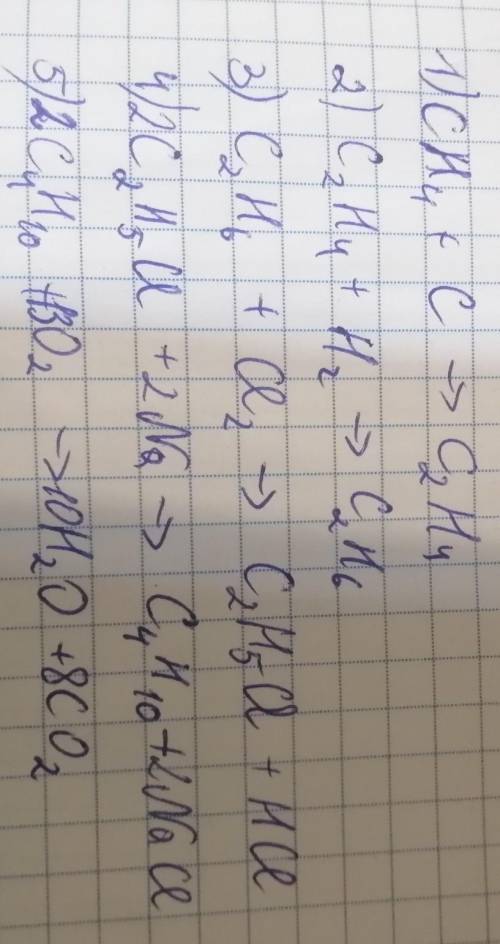 1) CH₄ + C → C₂H₄
2) C₂H₄ + H₂ → C₂H₆
3) C₂H₆ + Cl₂ → C₂H₅Cl + HCl
4) 2C₂H₅Cl + 2Na → C₄H₁₀ + 2NaCl
5) 2C₄H₁₀ + 13O₂ → 10H₂O + 8CO₂